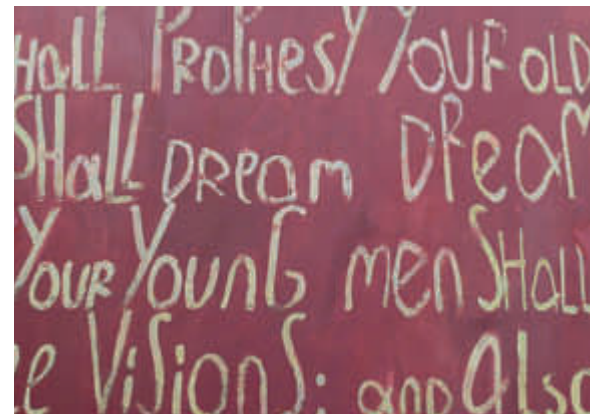 Hall PRoPHesY YOUR OLD
SHall DReam DReam
YOUR YounG men SHaLL
e ViSionS: anD alSo